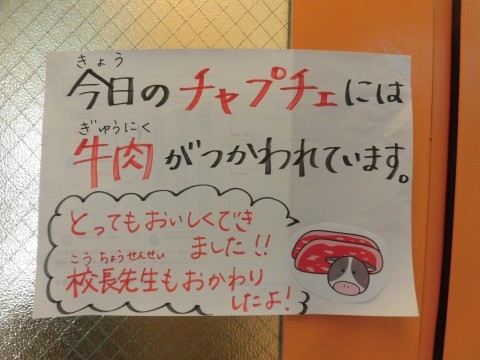 きょう
今日のチャプチェには
ぎゅうにく
牛肉がつかわれています。
とってもおいしくでき
ました!!
こうちょうせんせい
校長先生もおかわり
したよ!